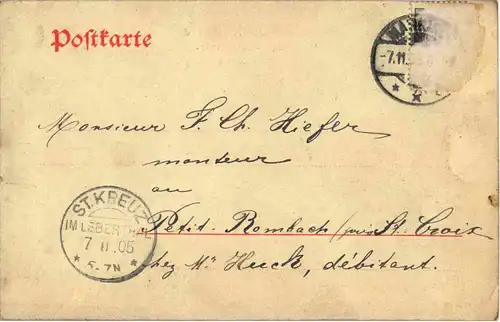 Postkarte
-7.11.
Monsieur F. Ch. Hiefer
monteur
au
Petit-Rombach / près St. Croix
chez Mr Huck, débitant.
ST. KREUZ
IM LEBERTHAL
7 11 05
5-7N